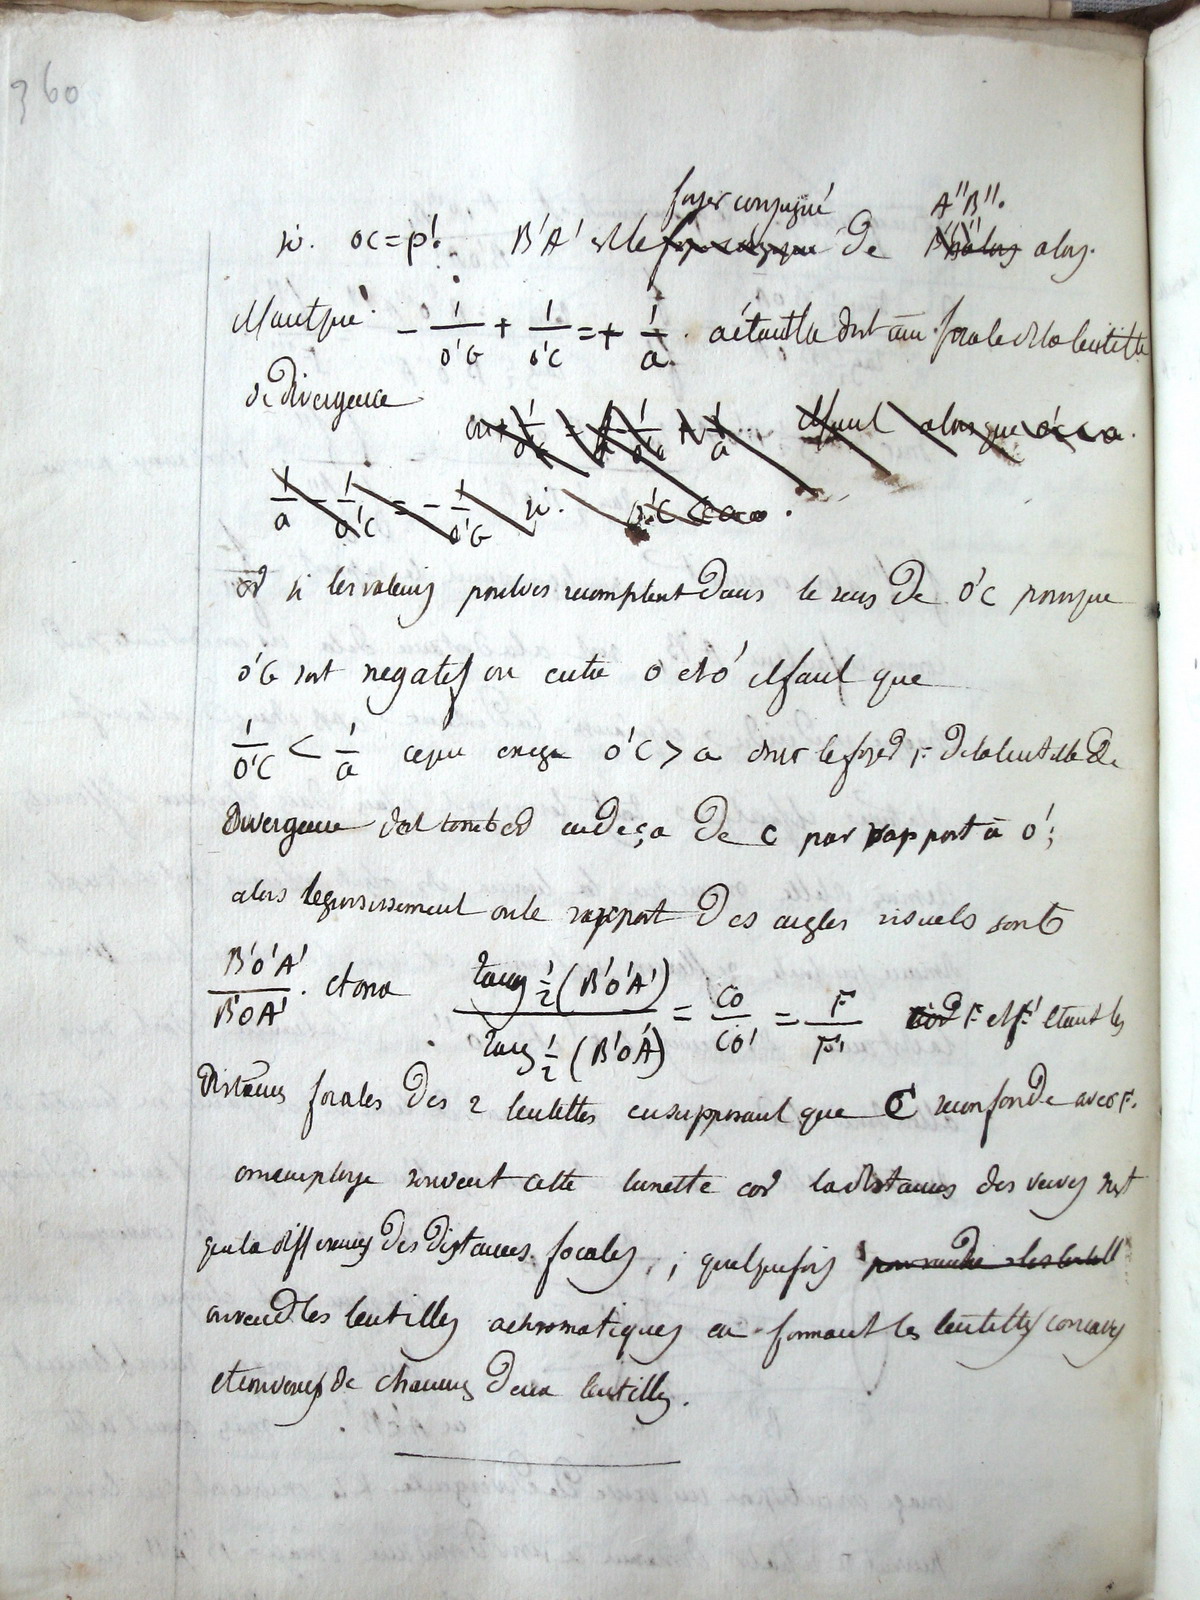 360
foyer conjugué A''B''.
si. oc=p'. B'A' est le de alors.
Il faut que - 1/o'G + 1/o'C = + 1/a. a étant la distance focale de la lentille
de divergence
1/a - 1/o'C = - 1/o'G si. o'C < a.
or si les valeurs positives se comptent dans le sens de o'C pour que
o'G soit negatif ou entre o et o' il faut que
1/o'C < 1/a ce qui exige o'C > a donc le foyer F de la lentille de
Divergence doit tomber en deça de C par rapport à o';
alors le grossissement ou le rapport des angles visuels sont
B'o'A'/B'oA'. et on a tang 1/2 (B'o'A') / tang 1/2 (B'oA') = Co/Co' = F/F' F et F' étant les
Distances focales des 2 lentilles en supposant que C se confonde avec F.
on employe souvent cette lunette car la distances des verres n'est
que la differences des distances focales, ; quelquefois
on rend les lentilles achromatiques en formant les lentilles concaves
et convexes de chacunes deux lentilles.